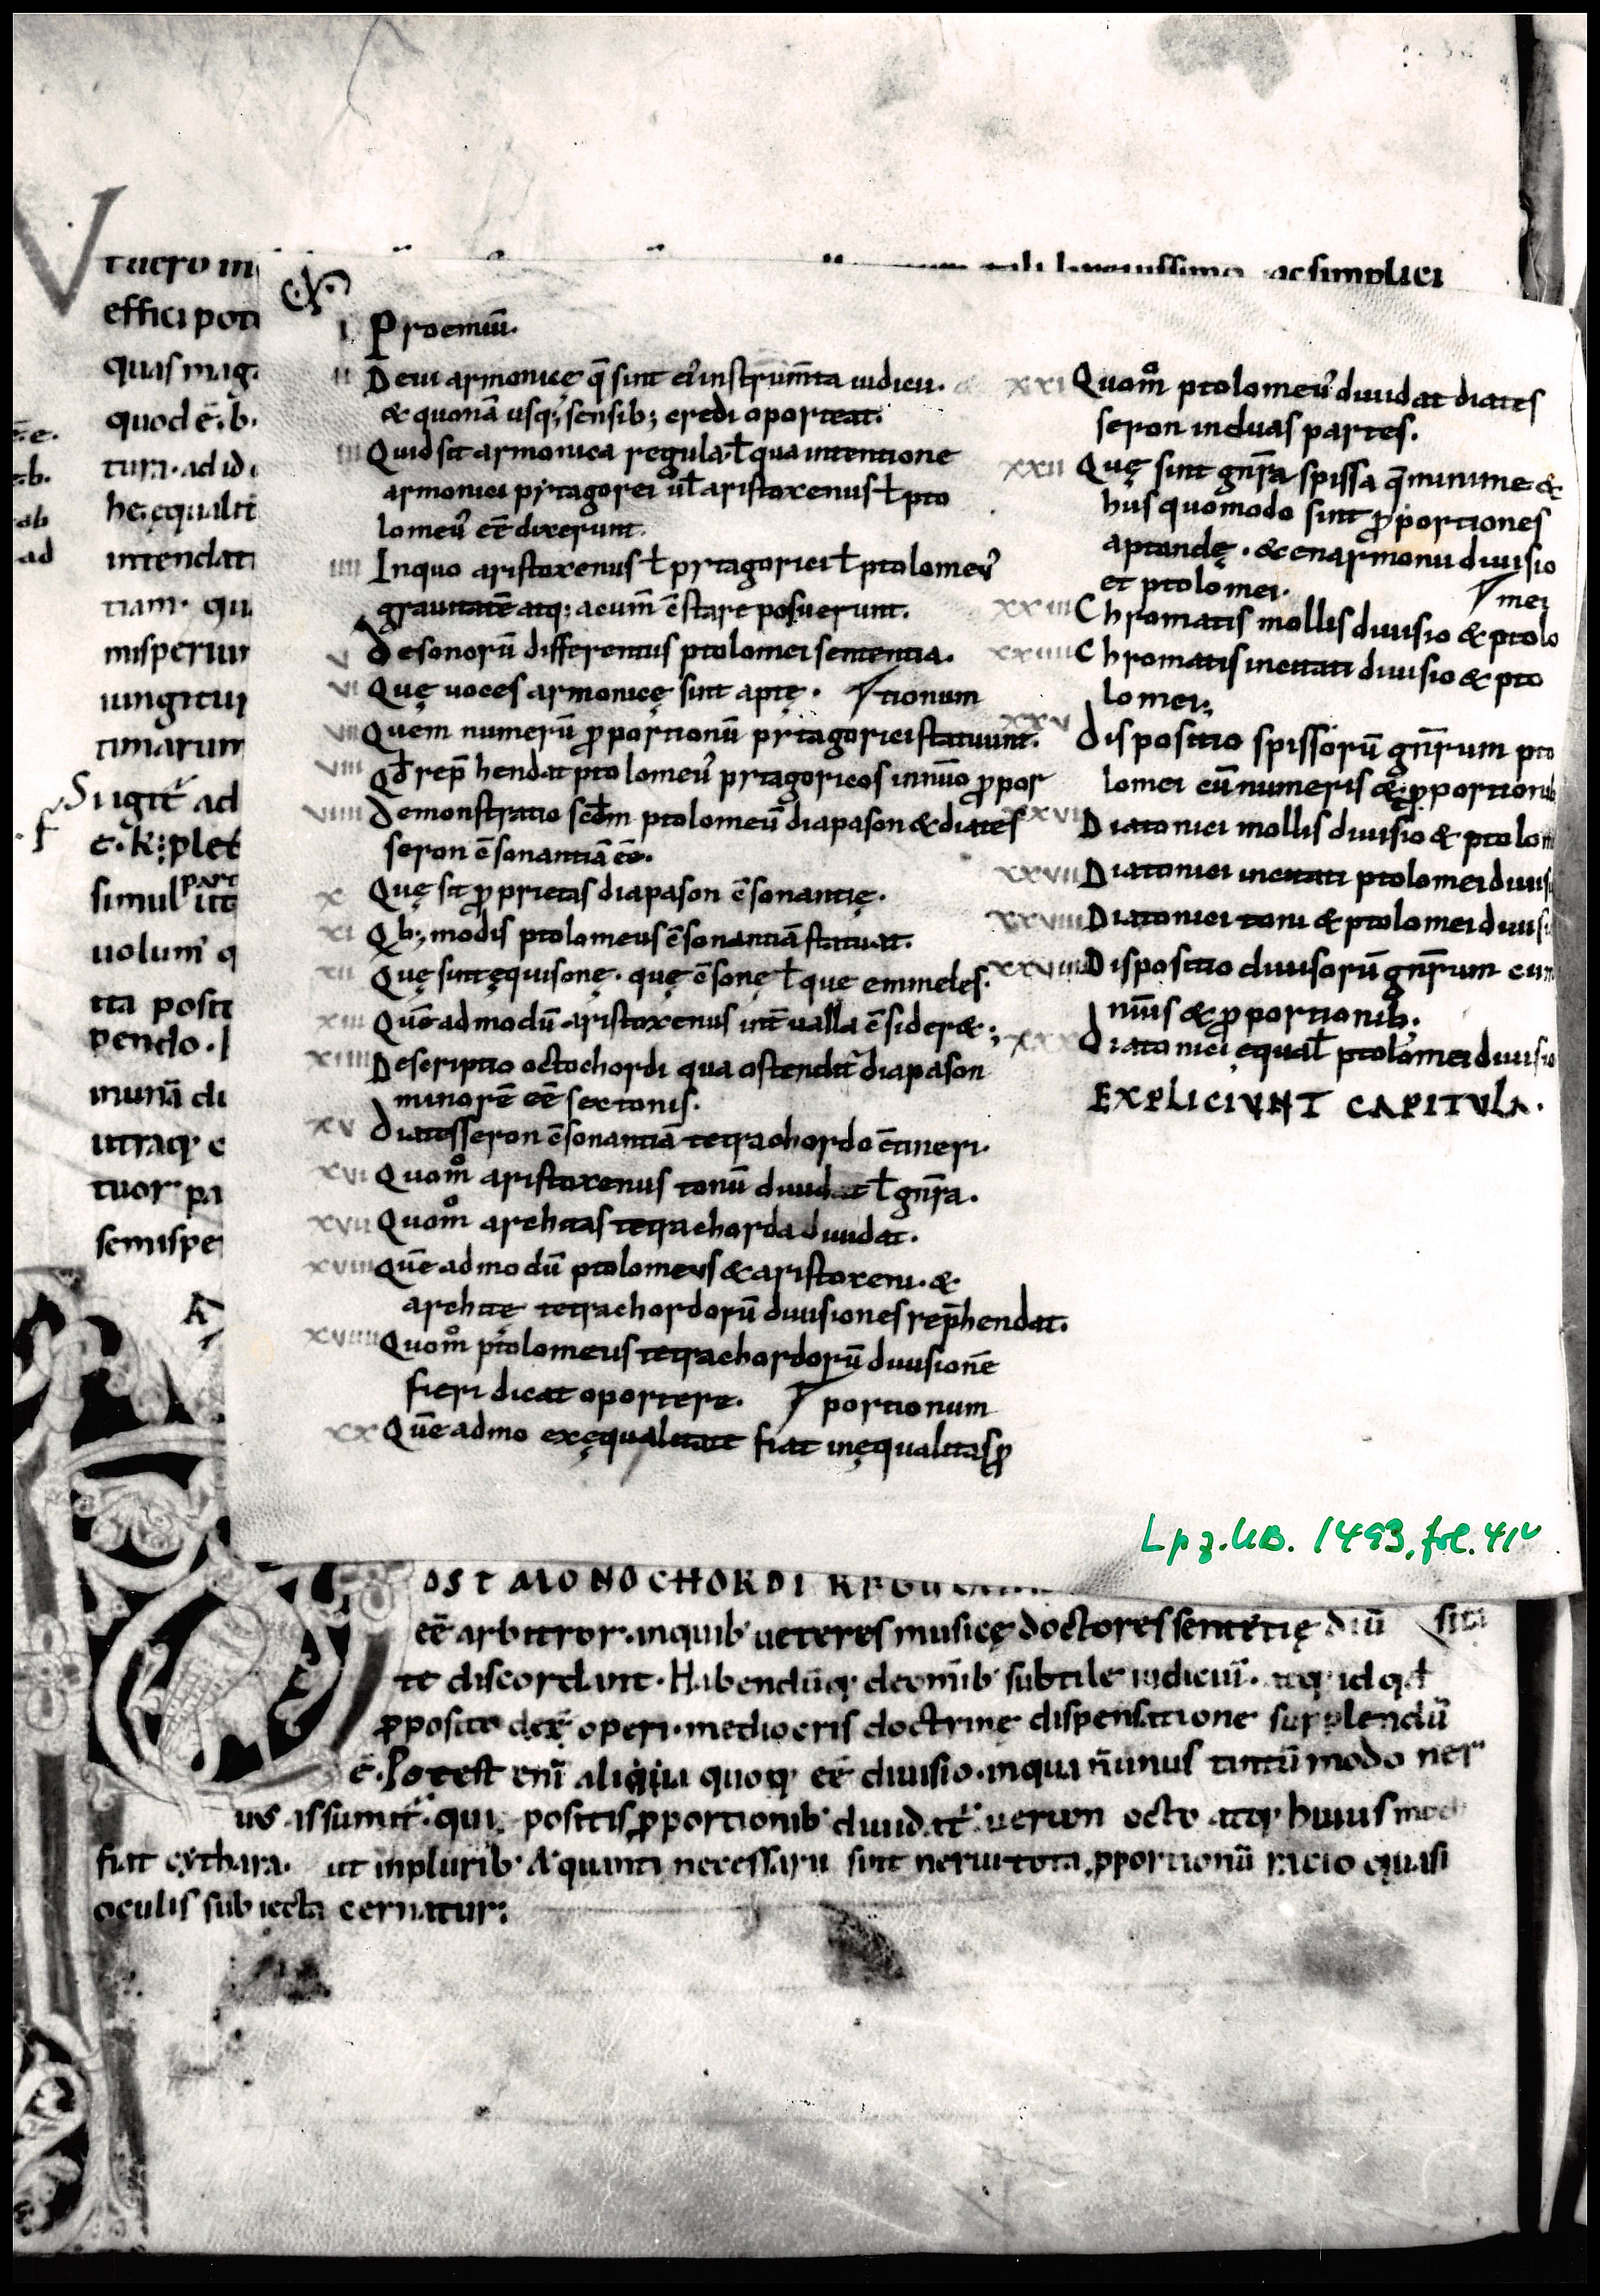 V
tuero in
ac simplici
effici pot
quas mag
quod ē. b.
tura. ad id
he. equalit
intendat
tiam. qu
misperuir
iungitur
timarum
Sugit᷑ ad
c. k: plet
simul part ut
uolum᷒ q
ita posit
pendo. l
munā di
utraq; c
tuor pa
semispe
ē. e.
b.
ab
ad
I Proemiū.
II De ui armonicę q̄ sint ei᷒ instrum̄ta iudicii.
& quonā usq; sensib; credi oporteat.
III Quid sit armonica regula. ł qua intentione
armonici pytagorei uł aristoxenus ł pto
lomeu᷒ eē dixerunt.
IIII In quo aristoxenus ł pytagorici ł ptolomeu᷒
grauitatē atq; acum̄ c̄stare posuerunt.
V De sonorū differentiis ptolomei sententia.
VI Quę uoces armonicę sint aptę. tionum
VII Quem numerū ꝓportionū pytagorici statuunt.
VIII Qd̄ rep̄hendat ptolomeu᷒ pytagoricos in nūo ꝓpor
VIIII Demonstratio scd̄m ptolomeū diapason & diates
seron c̄sonantiā eē.
X Quę sit ꝓprietas diapason c̄sonantię.
XI Qb; modis ptolomeus c̄sonantiā statuat.
XII Quę sint ęquisonę. quę c̄sonę ł que emmeles.
XIII Quē ad modū aristoxenus int̄ualla c̄sider&;
XIIII Descriptio octochordi qua ostendit᷑ diapason
minorē eē sex tonis.
XV Diatesseron c̄sonantiā tetrachordo c̄tineri.
XVI Quom̊ aristoxenus tonū diuidat ł gn̄ra.
XVII Quom̊ architas tetrachorda diuidat.
XVIII Quē ad modū ptolomeus & aristoxeni. &
archite tetrachordorū diuisiones rep̄hendat.
XVIIII Quom̊ ptolomeus tetrachordorū diuisionē
fieri dicat oportere. portionum
XX Quē admo ex ęqualitate fiat inęqualitas ꝓ
XXI Quom̊ ptolomeu᷒ diuidat diates
seron in duas partes.
XXII Quę sint gn̄ra spissa q̄ minime &
hus quomodo sint ꝓportiones
aptandę. & enarmonii diuisio
et ptolomei. mei
XXIII Chromatis mollis diuisio & ptolo
XXIIII Chromatis incitati diuisio & pto
lomei;
XXV Dispositio spissorū gn̄rum pto
lomei cū numeris & ꝓportionib
XXVI Diatonici mollis diuisio & ptolom
XXVII Diatonici incitati ptolomei diuis
XXVIII Diatonici toni & ptolomei diuisi
XXVIIII Dispositio diuisorū gn̄rum cum
nūis & ꝓportionib;
XXX Diatonici equał ptolomei diuisio
EXPLICIUNT CAPITULA.
Lpz. UB. 1493, fol. 41v
OST MONOCHORDI REGULA
eē arbitror. in quib᷒ ueteres musicę doctores sententię diū siti
te discordant. Habendūq; de om̄ib᷒ subtile iudiciū. atq; id qd̄
ꝓposito dee᷒ operi. mediocris doctrinę dispensatione supplendū
ē. Potest enī aliqua quoq; eē diuisio. in qua n̄ unus tantū modo ner
uus assumit᷑. qui positis ꝓportionib᷒ diuidat᷑. uerum octo atq; huius modi
fiat cythara. ut in plurib᷒ & quanti necessarii sint nerui tota ꝓportionū racio quasi
oculis subiecta cernatur;